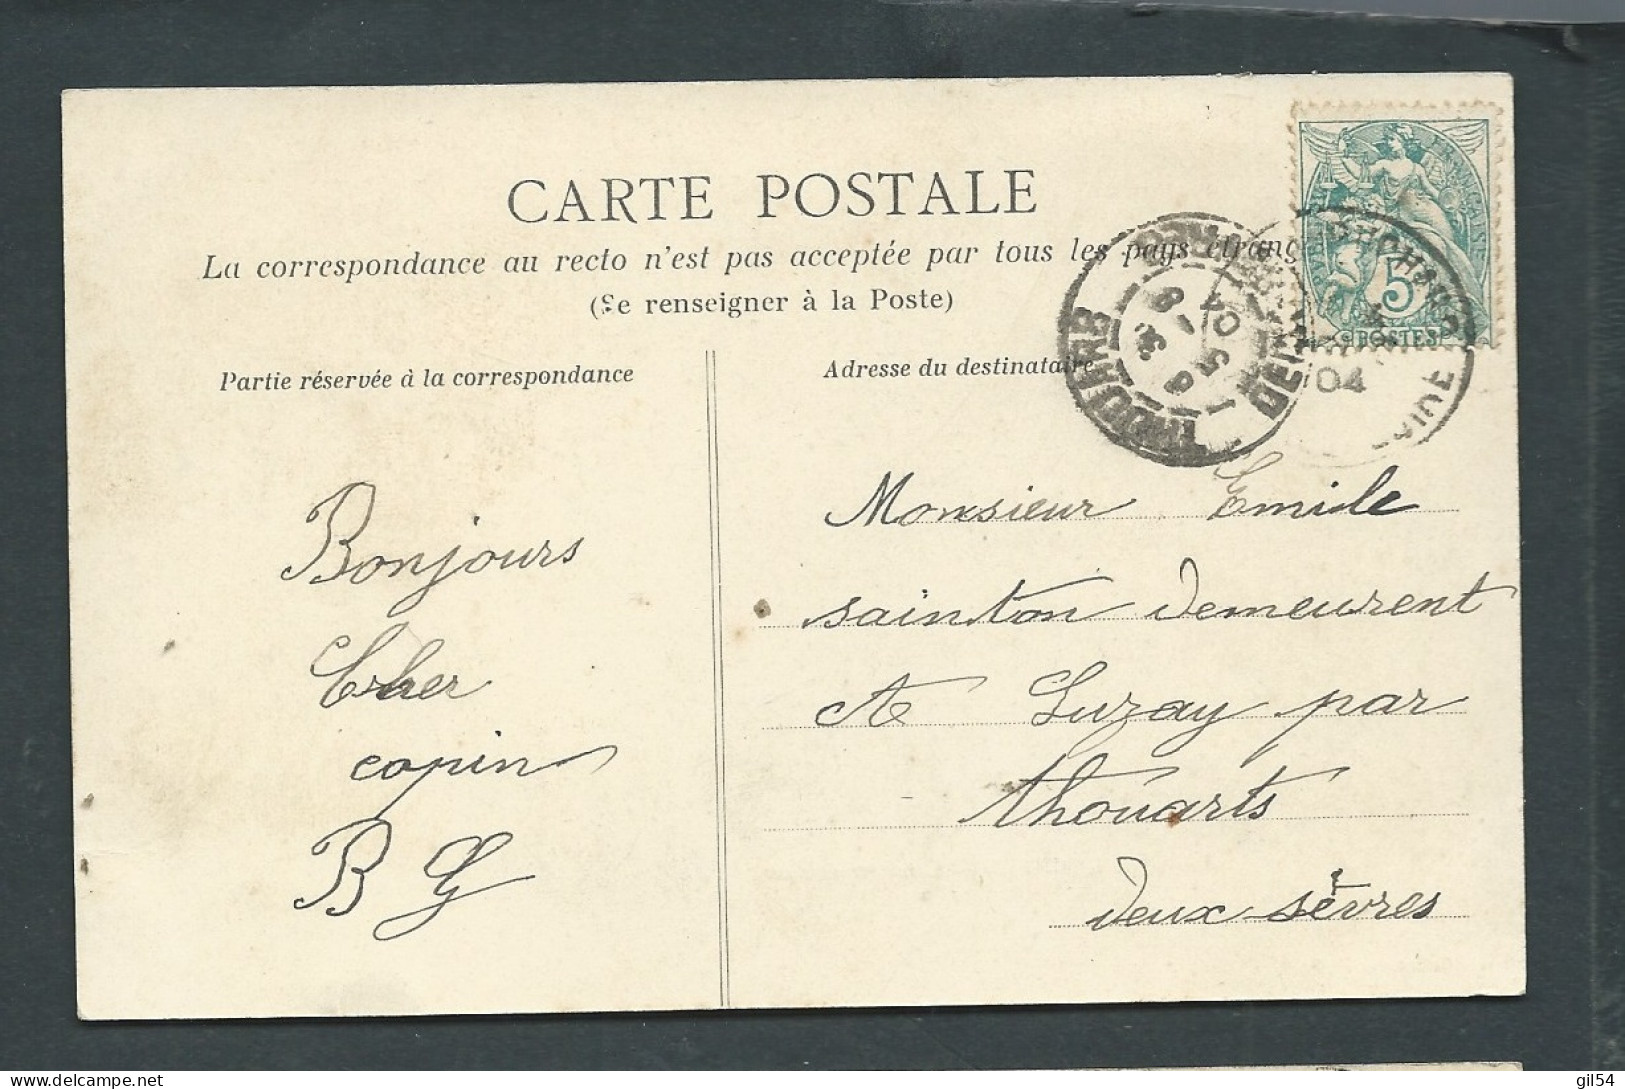 CARTE POSTALE
La correspondance au recto n'est pas acceptée par tous les pays étrang
(Se renseigner à la Poste)
Partie réservée à la correspondance
Adresse du destinataire
FRANÇAISE
5
POSTES
THOUARS
9
5
04
04
Bonjours
Cher
copin
B G
Monsieur Emile
sainton demeurent
A Luzay par
thouarts
deux-sèvres
gil54